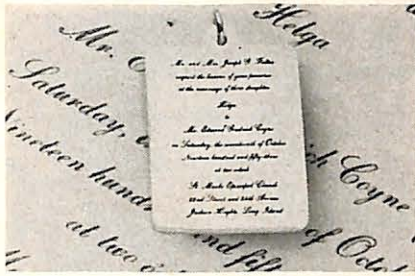 Helga
Mr.
Saturday,
Coyne
Nineteen hund
nd fift
of Octo
at two o
Mr. and Mrs. Joseph
request the honour of your presence
at the marriage of their daughter
Helga
to
Mr. Edward Frederick Coyne
on Saturday, the seventeenth of October
Nineteen hundred and fifty-three
at two o'clock
St. Marks Episcopal Church
82nd Street and 34th Avenue
Jackson Heights, Long Island